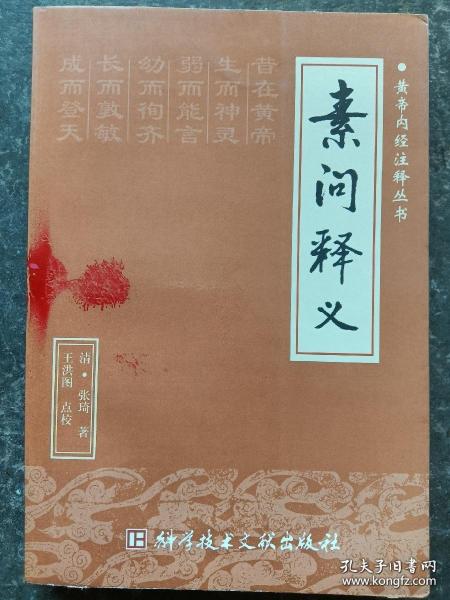 黄帝内经注释丛书
素问释义
昔在黄帝
生而神灵
弱而能言
幼而徇齐
长而敦敏
成而登天
清·张琦 著
王洪图 点校
科学技术文献出版社
孔夫子旧书网
www.kongfz.com